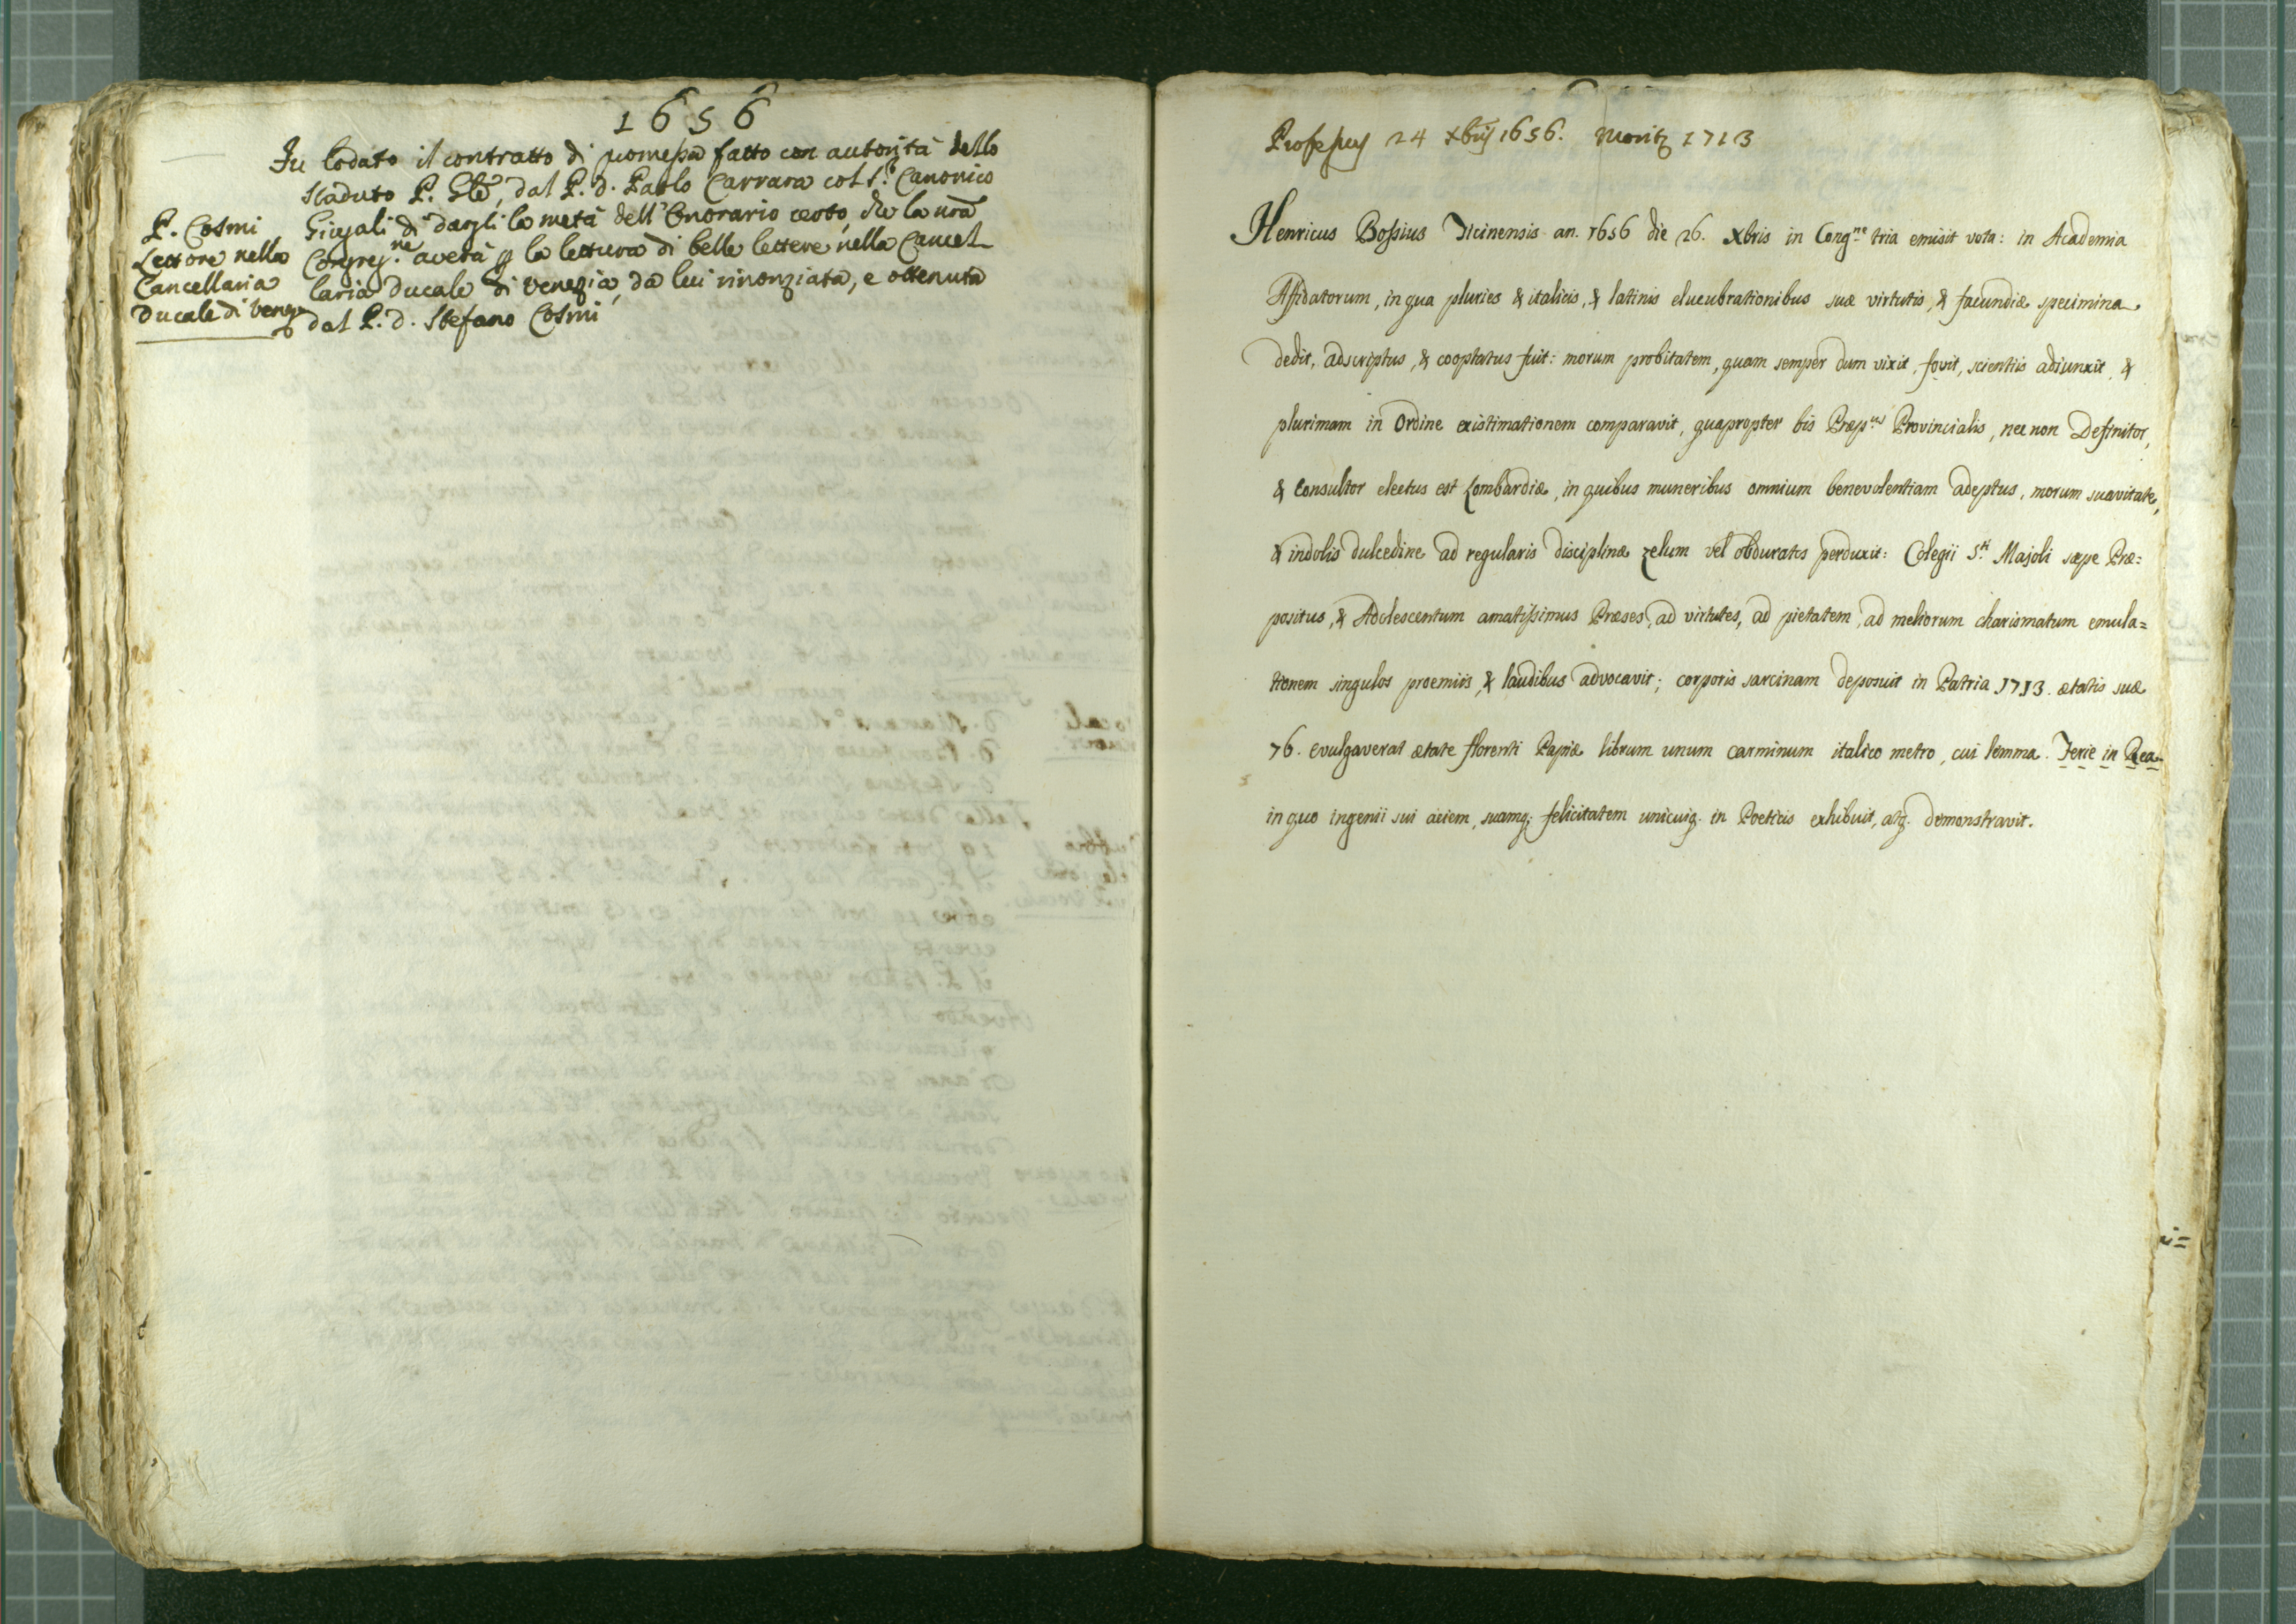 1656
Fu lodato il contratto di promessa fatto con autorità dello
scaduto P. Gle, dal P. D. Paolo Carrara col S.r Canonico
P. Cosmi
Lettore nella
Cancellaria
Ducale di Venez.a
di dargli la metà dell'Onorario certo, che la nrã
Congreg.ne averà ꝑ la lettura di belle lettere nella Cancel
laria Ducale di Venezia, da lui rinonziata, e ottenuta
dal P. D. Stefano Cosmi
Professus 24 Xbris 1656. Moritur 1713
Henricus Bossius Ticinensis an. 1656 die 26. Xbris in Cong.ne tria emisit vota: in Academia
Affidatorum, in qua pluries & italicis, & latinis elucubrationibus suæ virtutis, & facundiæ specimina
dedit, adscriptus, & cooptatus fuit: morum probitatem, quam semper dum vixit, fovit, scientiis adiunxit, &
plurimam in Ordine existimationem comparavit, quapropter bis Præp.us Provincialis, nec non Definitor,
& Consultor electus est Lombardiæ, in quibus muneribus omnium benevolentiam adeptus, morum suavitate,
& indolis dulcedine ad regularis disciplinæ zelum vel obduratos perduxit: Colegii S.ti Majoli sæpe Præ=
positus, & Adolescentum amatissimus Præses, ad virtutes, ad pietatem, ad meliorum charismatum emula=
tionem singulos proemiis, & laudibus advocavit; corporis sarcinam deposuit in Patria 1713. ætatis suæ
76. evulgaverat ætate florenti Papiæ librum unum carminum italico metro, cui lemma. Ferie in Rea.
in quo ingenii sui aciem, suamq; felicitatem unicuiq. in Poeticis exhibuit, atq. demonstravit.